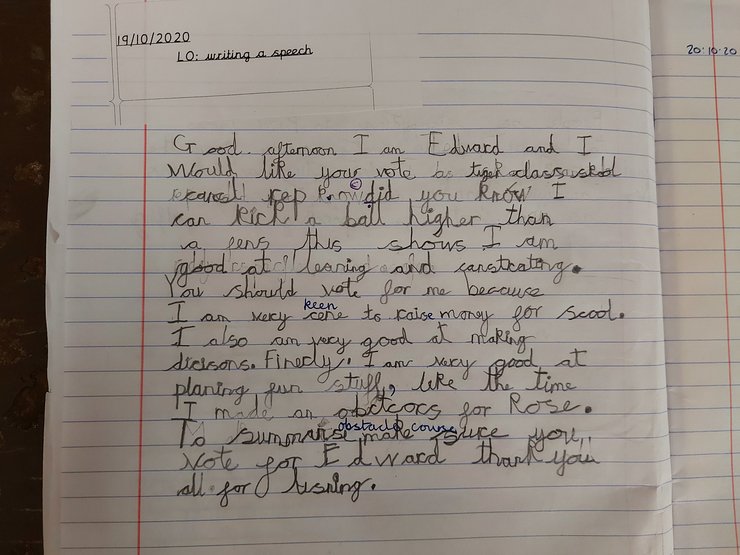 19/10/2020
LO: writing a speech
20.10.20
Good afternoon I am Edward and I
Would like your vote be tiger class skool
rep did you know I
can kick a ball higher than
a fens this shows I am
good at leaning and
You should vote for me because
keen
I am very cene to raise money for scool.
I also am very good at making
dicisons. Finerly. I am very good at
planing fun stuff, like the time
I made an for Rose.
obstacle course
To summarise make sure you
vote for Edward thank you
all for lisning.